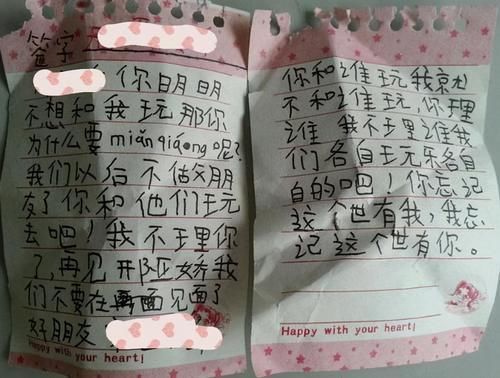 签字 王
你明明
不想和我玩那你
为什么要miǎnqiáng呢?
我们以后不做朋
友了你和他们玩
去吧!我不理你
了,再见
们不要在再面见面了
好朋友
Happy with your heart!
你和谁玩我就
不和谁玩,你理
谁我不理谁我
们各自玩乐各自
自的吧!你忘记
这个世有我,我忘
记这个世有你。
Happy with your heart!